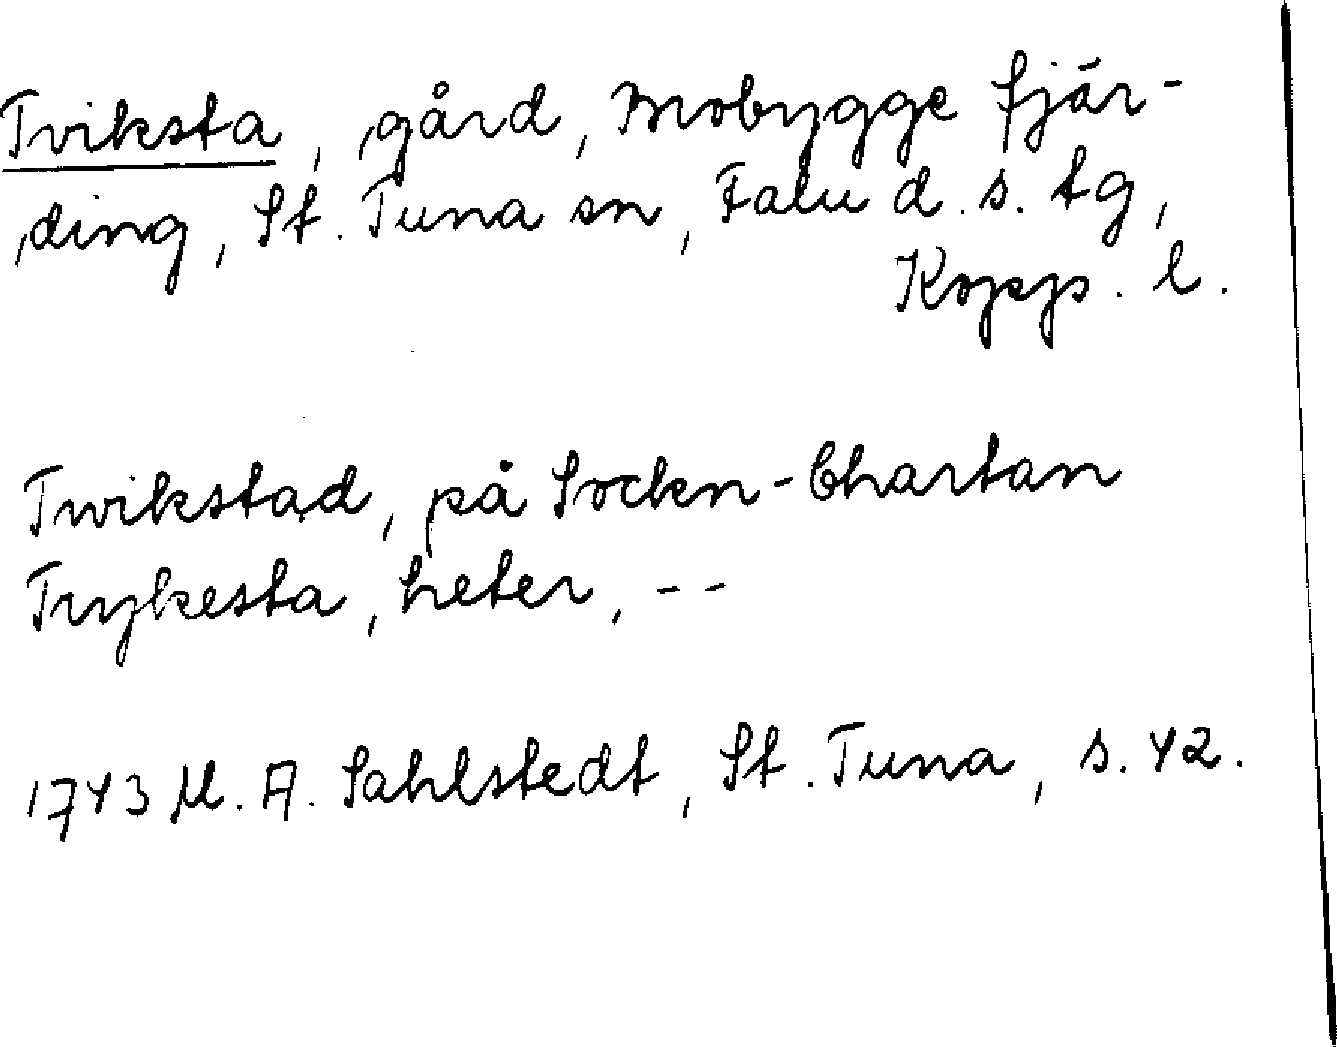 Tviksta, gård, Mobygge fjär-
ding, St. Tuna sn, Falu d. s. tg,
Kopp. l.
Twikstad, på Sockn-Chartan
Twykesta, heter, --
1743 M. A. Sahlstedt, St. Tuna, s. 42.